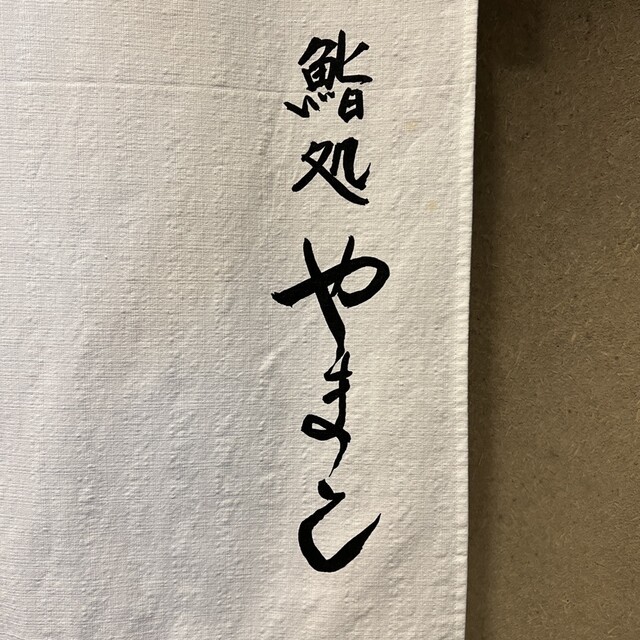 鮨処 やまと